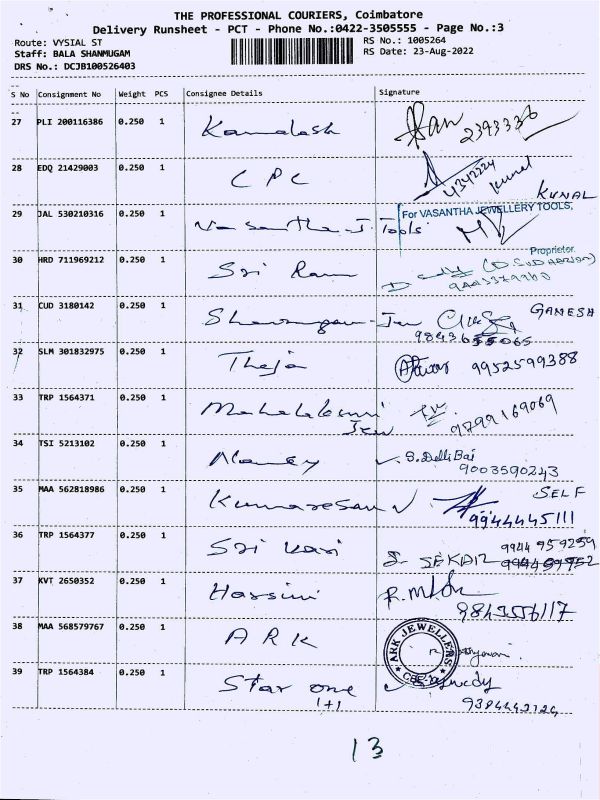 THE PROFESSIONAL COURIERS, Coimbatore
Delivery Runsheet - PCT - Phone No.:0422-3505555 - Page No.:3
Route: VYSIAL ST RS No.: 1005264
Staff: BALA SHANMUGAM RS Date: 23-Aug-2022
DRS No.: DCJB100526403
S No Consignment No Weight PCS Consignee Details Signature
27 PLI 200116386 0.250 1 Kamalesh 2393336
28 EDQ 21429003 0.250 1 CPC 4342224 Kunal
KUNAL
29 JAL 530210316 0.250 1 Vasantha J. Tools For VASANTHA JEWELLERY TOOLS,
Proprietor.
30 HRD 711969212 0.250 1 Sri Ram
31 CUD 3180142 0.250 1 Shanmugam Jew GANESH
32 SLM 301832975 0.250 1 Theja 9952599388
33 TRP 1564371 0.250 1 Mahalakshmi Jew 9799169069
34 TSI 5213102 0.250 1 S. Delli Bai
9003590243
35 MAA 562818986 0.250 1 Kumaresan V SELF
9944445111
36 TRP 1564377 0.250 1 Sri Vari SEKAR 9944959259
37 KVT 2650352 0.250 1 Hassini
9843556117
38 MAA 568579767 0.250 1 ARK ARK JEWELLERS
39 TRP 1564384 0.250 1 Star one
1+1 9384442124
13